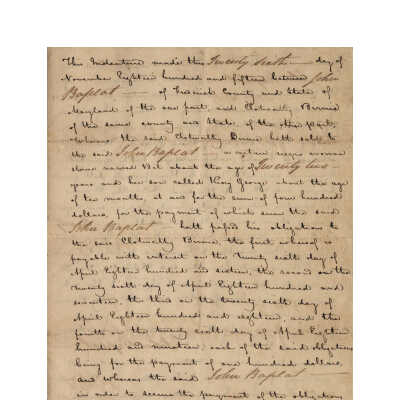 This Indenture made this Twenty Sixth day of
November Eighteen hundred and fifteen between John
Baptat of Frederick County and State of
Maryland of the one part, and Clotually Birnie
of the same county and State of the other part,
Whereas the said Clotually Birnie hath sold to
the said John Baptat a certain negro woman
slave named Bet about the age of Twenty two
years and her son called King George about the age
of ten months, at and for the sum of four hundred
dollars, for the payment of which sum the said
John Baptat hath passed his obligations to
the said Clotually Birnie, the first whereof is
payable with interest on the twenty sixth day of
April Eighteen hundred and sixteen, the second on the
twenty sixth day of April Eighteen hundred and
seventeen, the third on the twenty sixth day of
April Eighteen hundred and eighteen, and the
fourth on the twenty sixth day of April Eighteen
hundred and nineteen, each of the said obligations
being for the payment of one hundred dollars,
and whereas the said John Baptat
in order to secure the payment of the obligations